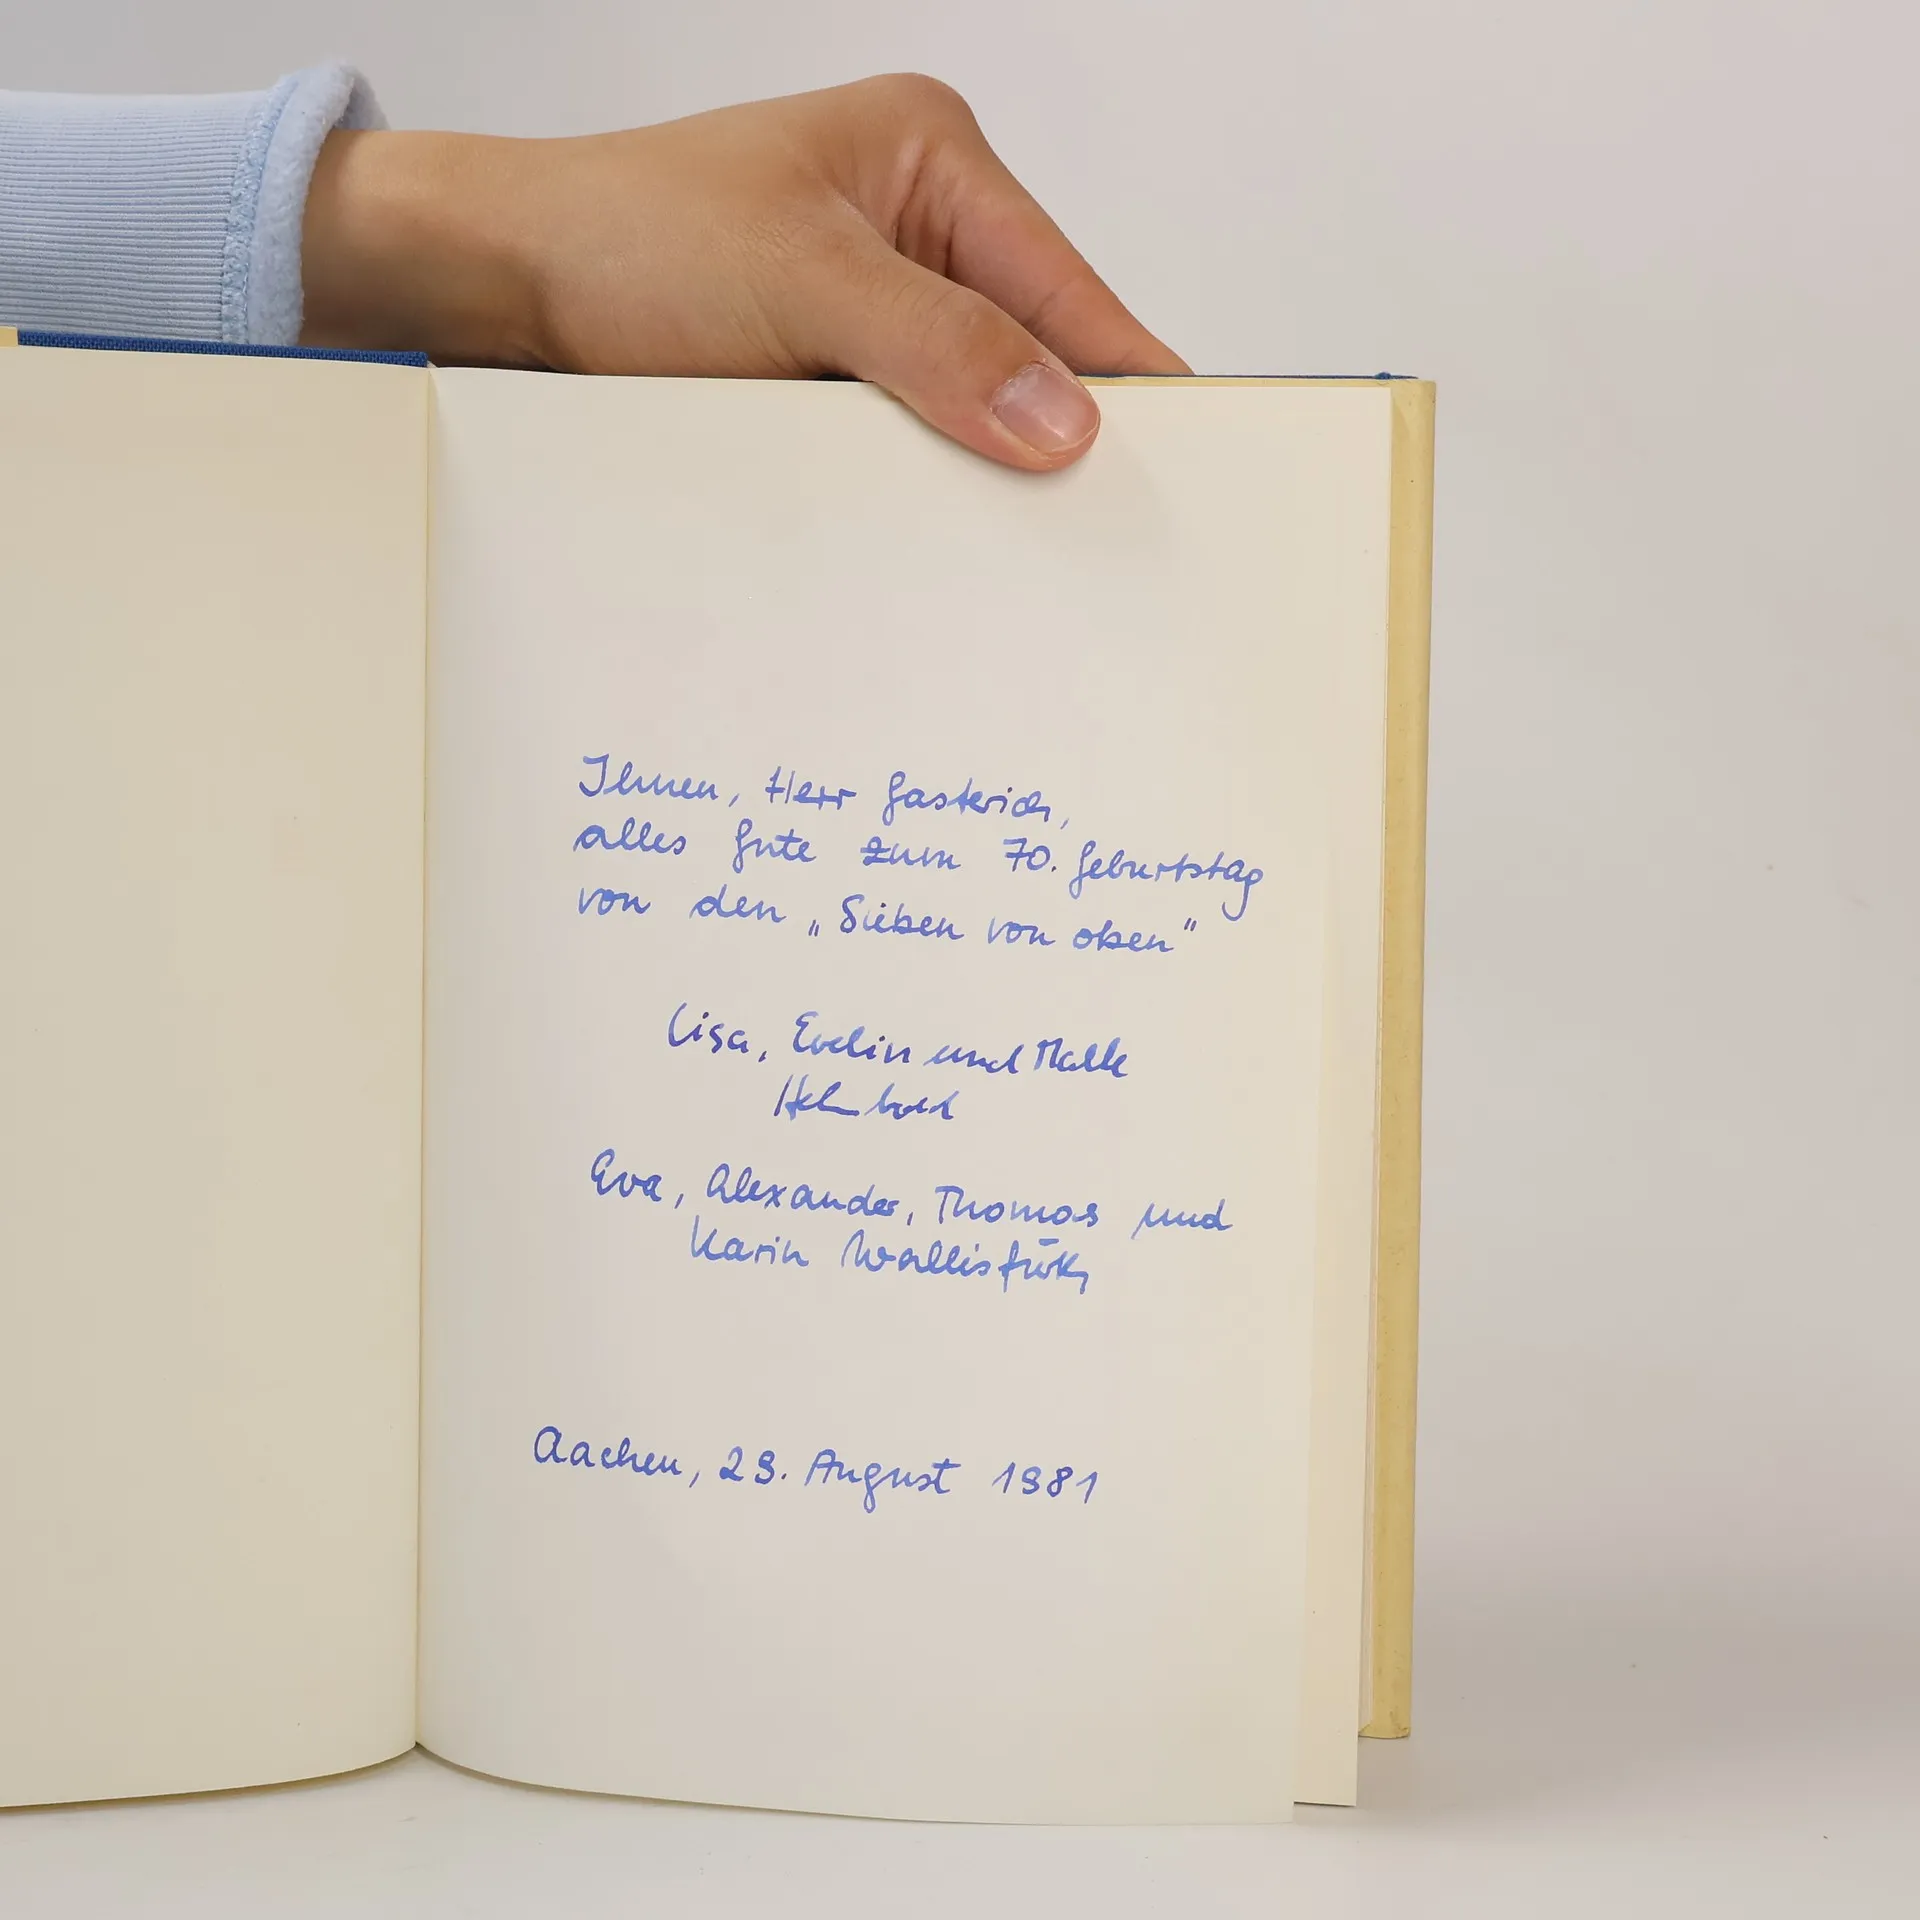 Ihnen, Herr Gasterich,
alles Gute zum 70. Geburtstag
von den „Sieben von oben"
Lisa, Evelin und Malte
Helmbold
Eva, Alexander, Thomas und
Karin
Aachen, 29. August 1981